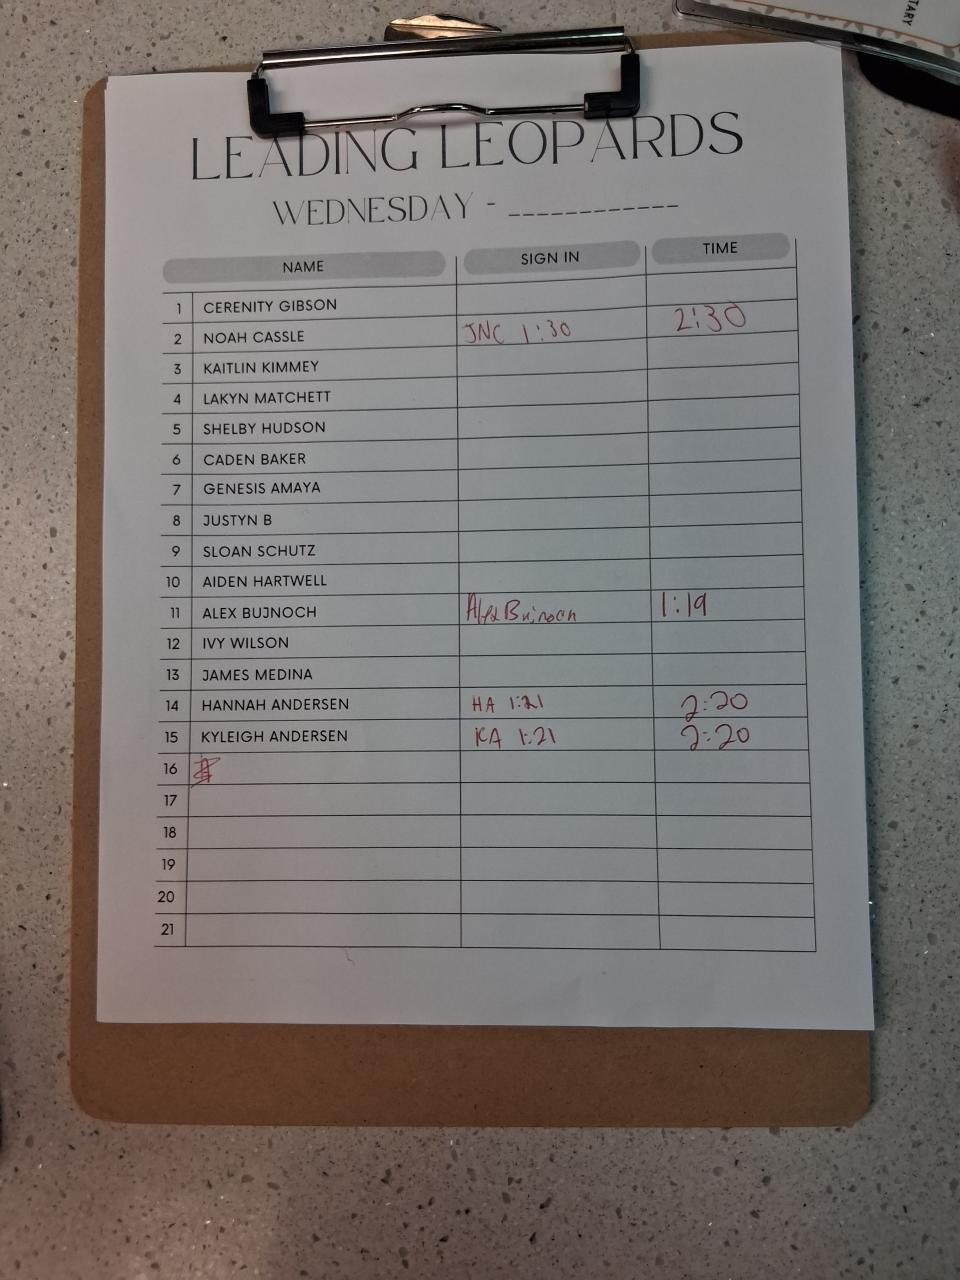 TARY
LEADING LEOPARDS
WEDNESDAY - ____________
NAME SIGN IN TIME
1 CERENITY GIBSON
2 NOAH CASSLE JNC 1:30 2:30
3 KAITLIN KIMMEY
4 LAKYN MATCHETT
5 SHELBY HUDSON
6 CADEN BAKER
7 GENESIS AMAYA
8 JUSTYN B
9 SLOAN SCHUTZ
10 AIDEN HARTWELL
11 ALEX BUJNOCH Alex Bujnoch 1:19
12 IVY WILSON
13 JAMES MEDINA
14 HANNAH ANDERSEN HA 1:21 2:20
15 KYLEIGH ANDERSEN KA 1:21 2:20
16
17
18
19
20
21